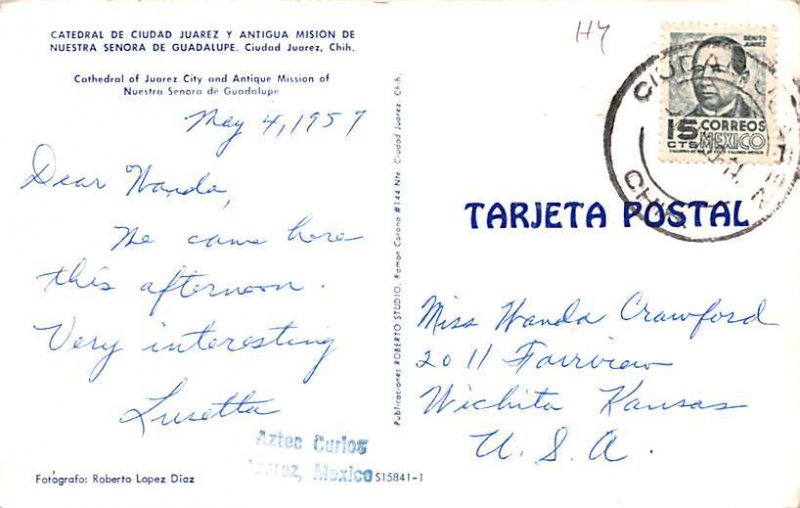 CATEDRAL DE CIUDAD JUAREZ Y ANTIGUA MISION DE
NUESTRA SENORA DE GUADALUPE. Ciudad Juarez, Chih.
Cathedral of Juarez City and Antique Mission of
Nuestra Senora de Guadalupe
May 4, 1959
Dear Wanda,
We came here
this afternoon.
Very interesting
Lusetta
Aztec Curios
Juarez, Mexico
S15841-1
Fotógrafo: Roberto Lopez Diaz
Publicaciones ROBERTO STUDIO, Ramon Corona #144 Nte. Ciudad Juarez, Chih.
H4
BENITO
JUAREZ
15 CORREOS
CTS MEXICO
TARJETA POSTAL
Miss Wanda Crawford
2011 Fairview
Wichita Kansas
U. S. A.